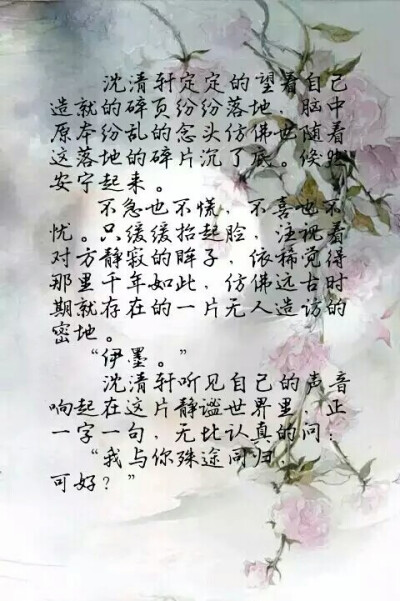 沈清轩定定的望着自己
造就的碎页纷纷落地，脑中
原本纷乱的念头仿佛也随着
这落地的碎片沉了底。倏然
安宁起来。
不急也不慌，不喜也不
忧。只缓缓抬起脸，注视着
对方静寂的眸子，依稀觉得
那里千年如此，仿佛远古时
期就存在的一片无人造访的
密地。
“伊墨。”
沈清轩听见自己的声音
响起在这片静谧世界里，正
一字一句，无比认真的问：
“我与你殊途同归，
可好？”